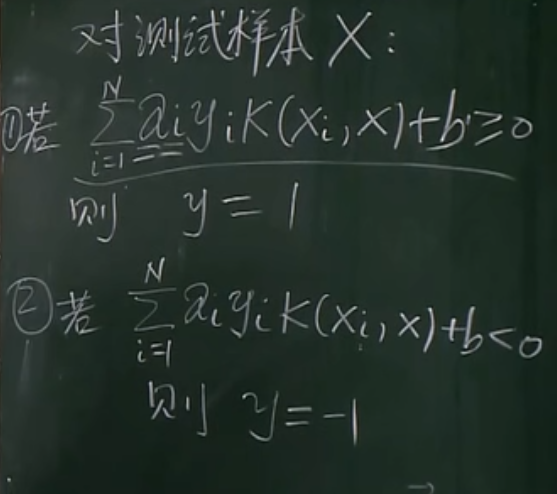 对测试样本 X:
①若 ∑_{i=1}^{N} α_i y_i K(X_i, X)+b≥0
则 y = 1
②若 ∑_{i=1}^{N} α_i y_i K(X_i, X)+b<0
则 y=-1
→